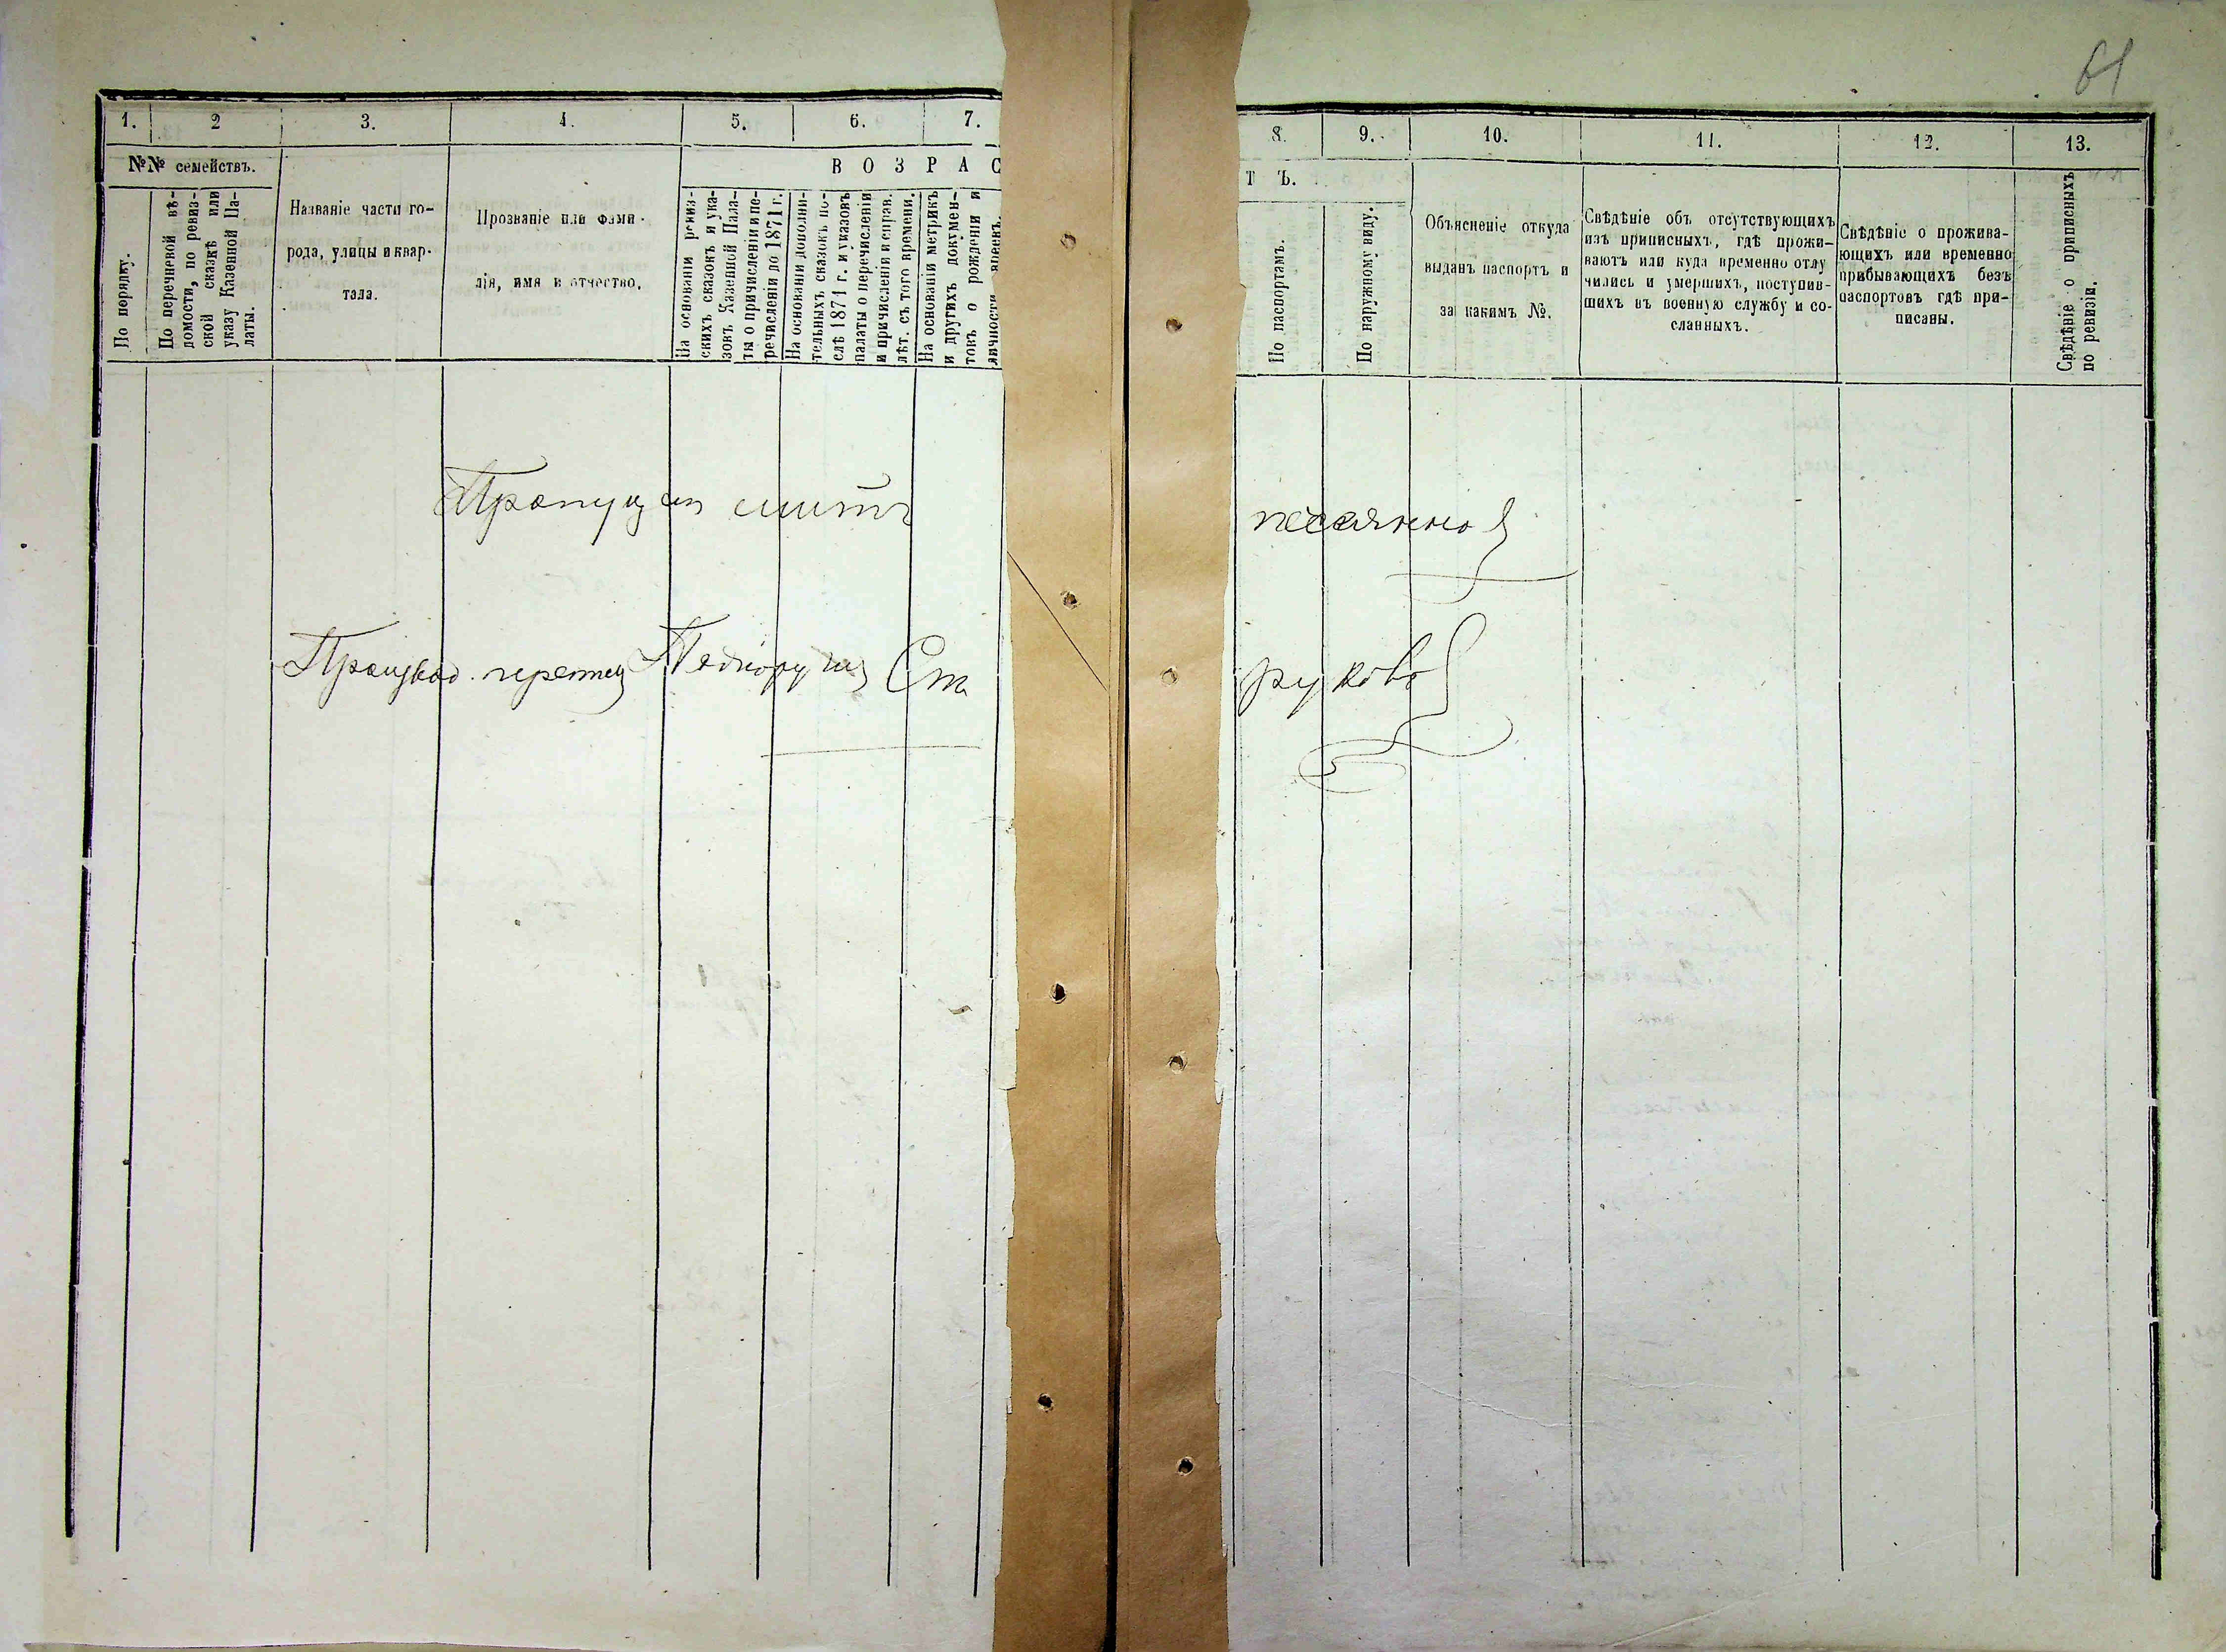 61
1. 2 3. 4. 5. 6. 7. 8. 9. 10. 11. 12. 13.
№№ семействъ.
В О З Р А С Т Ъ.
По порядку.
По перечневой вѣ-
домости, по ревиз-
ской сказкѣ или
указу Казенной Па-
латы.
Названіе части го-
рода, улицы и квар-
тала.
Прозваніе или фами-
лія, имя и отчество.
На основаніи ревиз-
скихъ сказокъ и ука-
зовъ Казенной Пала-
ты о причисленіи и пе-
речисленіи до 1871 г.
На основаніи дополни-
тельныхъ сказокъ по-
слѣ 1871 г. и указовъ
палаты о перечисленіи
и причисленіи и справ.
лѣт. съ того времени.
На основаніи метрикъ
и другихъ докумен-
товъ о рожденіи и
личности
По паспортамъ.
По наружному виду.
Объясненіе откуда
выданъ паспортъ и
за какимъ №.
Свѣдѣніе объ отсутствующихъ
изъ приписныхъ, гдѣ прожи-
ваютъ или куда временно отлу
чились и умершихъ, поступив-
шихъ въ военную службу и со-
сланныхъ.
Свѣдѣніе о прожива-
ющихъ или временно
прибывающихъ безъ
паспортовъ гдѣ при-
писаны.
Свѣдѣніе о приписныхъ
по ревизіи.
Пропущен листъ
Подпоручик Ста руковъ